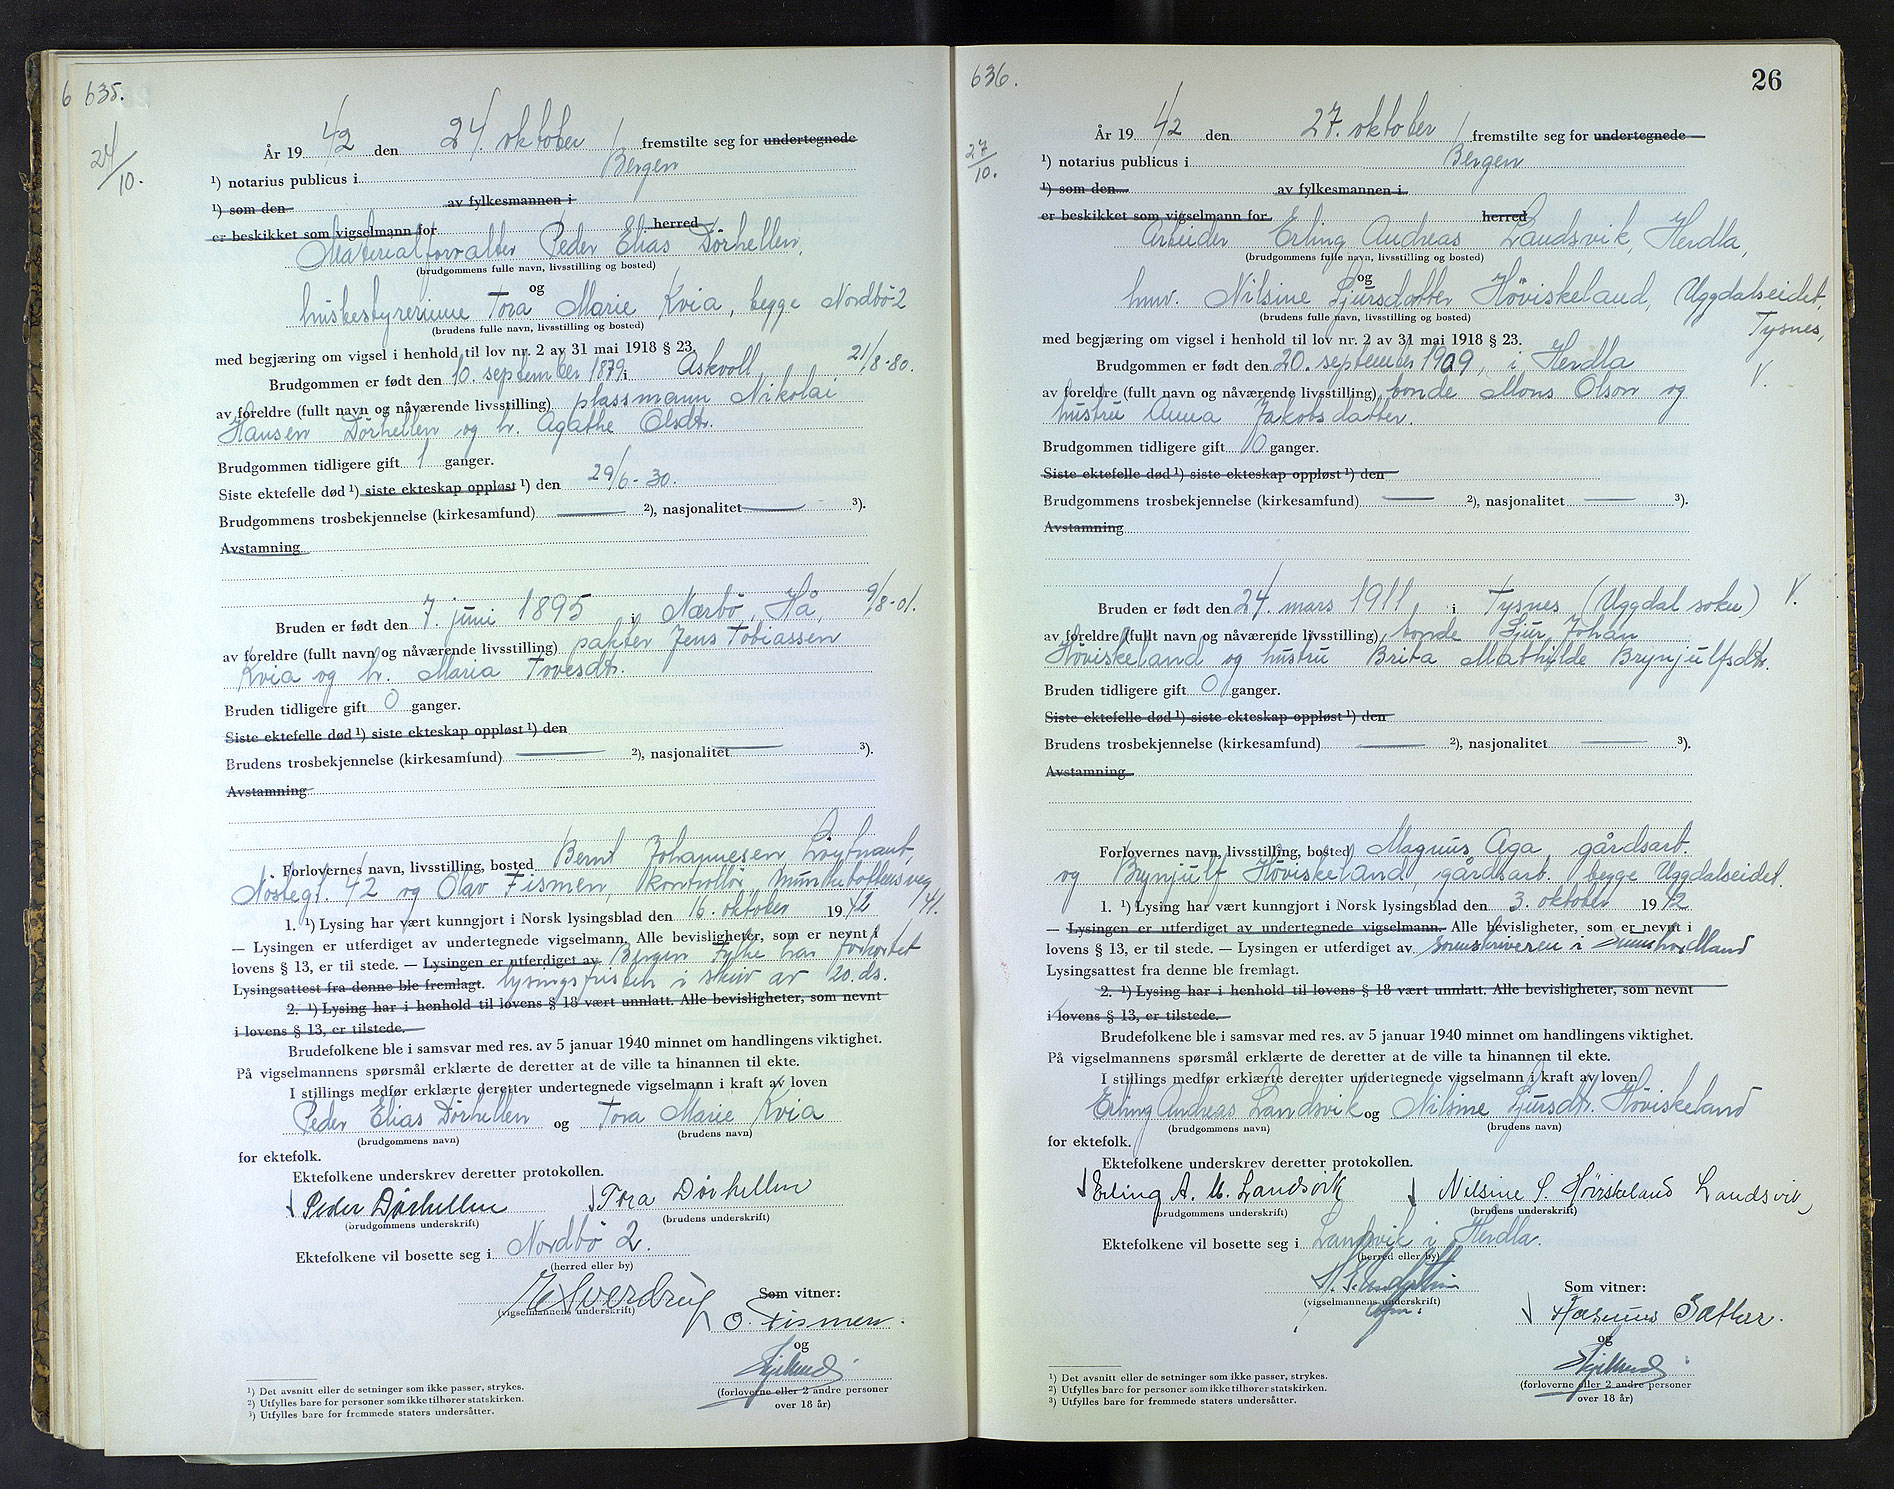 6 635.
24/10.
År 19 42 den 24. oktober fremstilte seg for undertegnede
¹) notarius publicus i Bergen
¹) som den av fylkesmannen i
er beskikket som vigselmann for herred
Materialforvalter Peder Elias Dörhellen,
(brudgommens fulle navn, livsstilling og bosted)
og
husbestyrerinne Tora Marie Kvia, begge Nordbö 2
(brudens fulle navn, livsstilling og bosted)
med begjæring om vigsel i henhold til lov nr. 2 av 31 mai 1918 § 23.
Brudgommen er født den 10. september 1879 i Askvoll, 21/8-80.
av foreldre (fullt navn og nåværende livsstilling) plassmann Nikolai
Hansen Dörhellen og h. Agathe Olsdtr.
Brudgommen tidligere gift 1 ganger.
Siste ektefelle død ¹) siste ekteskap oppløst ¹) den 29/6-30.
Brudgommens trosbekjennelse (kirkesamfund) ²), nasjonalitet ³).
Avstamning
Bruden er født den 7. juni 1895 i Nærbö, Hå, 9/8-01.
av foreldre (fullt navn og nåværende livsstilling) pakter Jens Tobiassen
Kvia og h. Maria Tovesdtr.
Bruden tidligere gift 0 ganger.
Siste ektefelle død ¹) siste ekteskap oppløst ¹) den
Brudens trosbekjennelse (kirkesamfund) ²), nasjonalitet ³).
Avstamning
Forlovernes navn, livsstilling, bosted Bernt Johannesen, Löytnant,
Nöstegt. 42 og Olav Fismen, kontrollör, Munkebottensveg
1. ¹) Lysing har vært kunngjort i Norsk lysingsblad den 16. oktober 19 42 41.
— Lysingen er utferdiget av undertegnede vigselmann. Alle bevisligheter, som er nevnt i
lovens § 13, er til stede. — Lysingen er utferdiget av Bergen Fylke har forkortet
Lysingsattest fra denne ble fremlagt. lysingsfristen i skriv av 20. ds.
2. ¹) Lysing har i henhold til lovens § 18 vært unnlatt. Alle bevisligheter, som nevnt
i lovens § 13, er tilstede.
Brudefolkene ble i samsvar med res. av 5 januar 1940 minnet om handlingens viktighet.
På vigselmannens spørsmål erklærte de deretter at de ville ta hinannen til ekte.
I stillings medfør erklærte deretter undertegnede vigselmann i kraft av loven
Peder Elias Dörhellen og Tora Marie Kvia
(brudgommens navn) (brudens navn)
for ektefolk.
Ektefolkene underskrev deretter protokollen.
Peder Dörhellen Tora Dörhellen
(brudgommens underskrift) (brudens underskrift)
Ektefolkene vil bosette seg i Nordbö 2.
(herred eller by)
Sverdrup Som vitner:
(vigselmannens underskrift)
O. Fismen.
og
(forloverne eller 2 andre personer
over 18 år)
¹) Det avsnitt eller de setninger som ikke passer, strykes.
²) Utfylles bare for personer som ikke tilhører statskirken.
³) Utfylles bare for fremmede staters undersåtter.
636.
26
27/10.
År 19 42 den 27. oktober fremstilte seg for undertegnede
¹) notarius publicus i Bergen
¹) som den av fylkesmannen i
er beskikket som vigselmann for herred
Arbeider Erling Andreas Landsvik, Herdla,
(brudgommens fulle navn, livsstilling og bosted)
og
hmv. Nilsine Sjursdatter Höviskeland, Uggdalseidet,
Tysnes,
(brudens fulle navn, livsstilling og bosted)
med begjæring om vigsel i henhold til lov nr. 2 av 31 mai 1918 § 23.
Brudgommen er født den 20. september 1909, i Herdla V.
av foreldre (fullt navn og nåværende livsstilling) bonde Mons Olson og
hustru Anna Jakobsdatter.
Brudgommen tidligere gift 0 ganger.
Siste ektefelle død ¹) siste ekteskap oppløst ¹) den
Brudgommens trosbekjennelse (kirkesamfund) ²), nasjonalitet ³).
Avstamning
Bruden er født den 24. mars 1911, i Tysnes (Uggdal sokn) V.
av foreldre (fullt navn og nåværende livsstilling) bonde Sjur Johan
Höviskeland og hustru Brita Mathilde Brynjulfsdtr.
Bruden tidligere gift 0 ganger.
Siste ektefelle død ¹) siste ekteskap oppløst ¹) den
Brudens trosbekjennelse (kirkesamfund) ²), nasjonalitet ³).
Avstamning
Forlovernes navn, livsstilling, bosted Magnus Aga gårdsarb.
og Brynjulf Höviskeland, gårdsarb. begge Uggdalseidet.
1. ¹) Lysing har vært kunngjort i Norsk lysingsblad den 3. oktober 19 42
— Lysingen er utferdiget av undertegnede vigselmann. Alle bevisligheter, som er nevnt i
lovens § 13, er til stede. — Lysingen er utferdiget av sorenskriveren i Sunnhordland
Lysingsattest fra denne ble fremlagt.
2. ¹) Lysing har i henhold til lovens § 18 vært unnlatt. Alle bevisligheter, som nevnt
i lovens § 13, er tilstede.
Brudefolkene ble i samsvar med res. av 5 januar 1940 minnet om handlingens viktighet.
På vigselmannens spørsmål erklærte de deretter at de ville ta hinannen til ekte.
I stillings medfør erklærte deretter undertegnede vigselmann i kraft av loven
Erling Andreas Landsvik og Nilsine Sjursdtr. Höviskeland
(brudgommens navn) (brudens navn)
for ektefolk.
Ektefolkene underskrev deretter protokollen.
Erling A. M. Landsvik Nilsine S. Höviskeland Landsvik
(brudgommens underskrift) (brudens underskrift)
Ektefolkene vil bosette seg i Landsvik i Herdla.
(herred eller by)
Som vitner:
(vigselmannens underskrift)
Rasmus Sæther.
og
(forloverne eller 2 andre personer
over 18 år)
¹) Det avsnitt eller de setninger som ikke passer, strykes.
²) Utfylles bare for personer som ikke tilhører statskirken.
³) Utfylles bare for fremmede staters undersåtter.